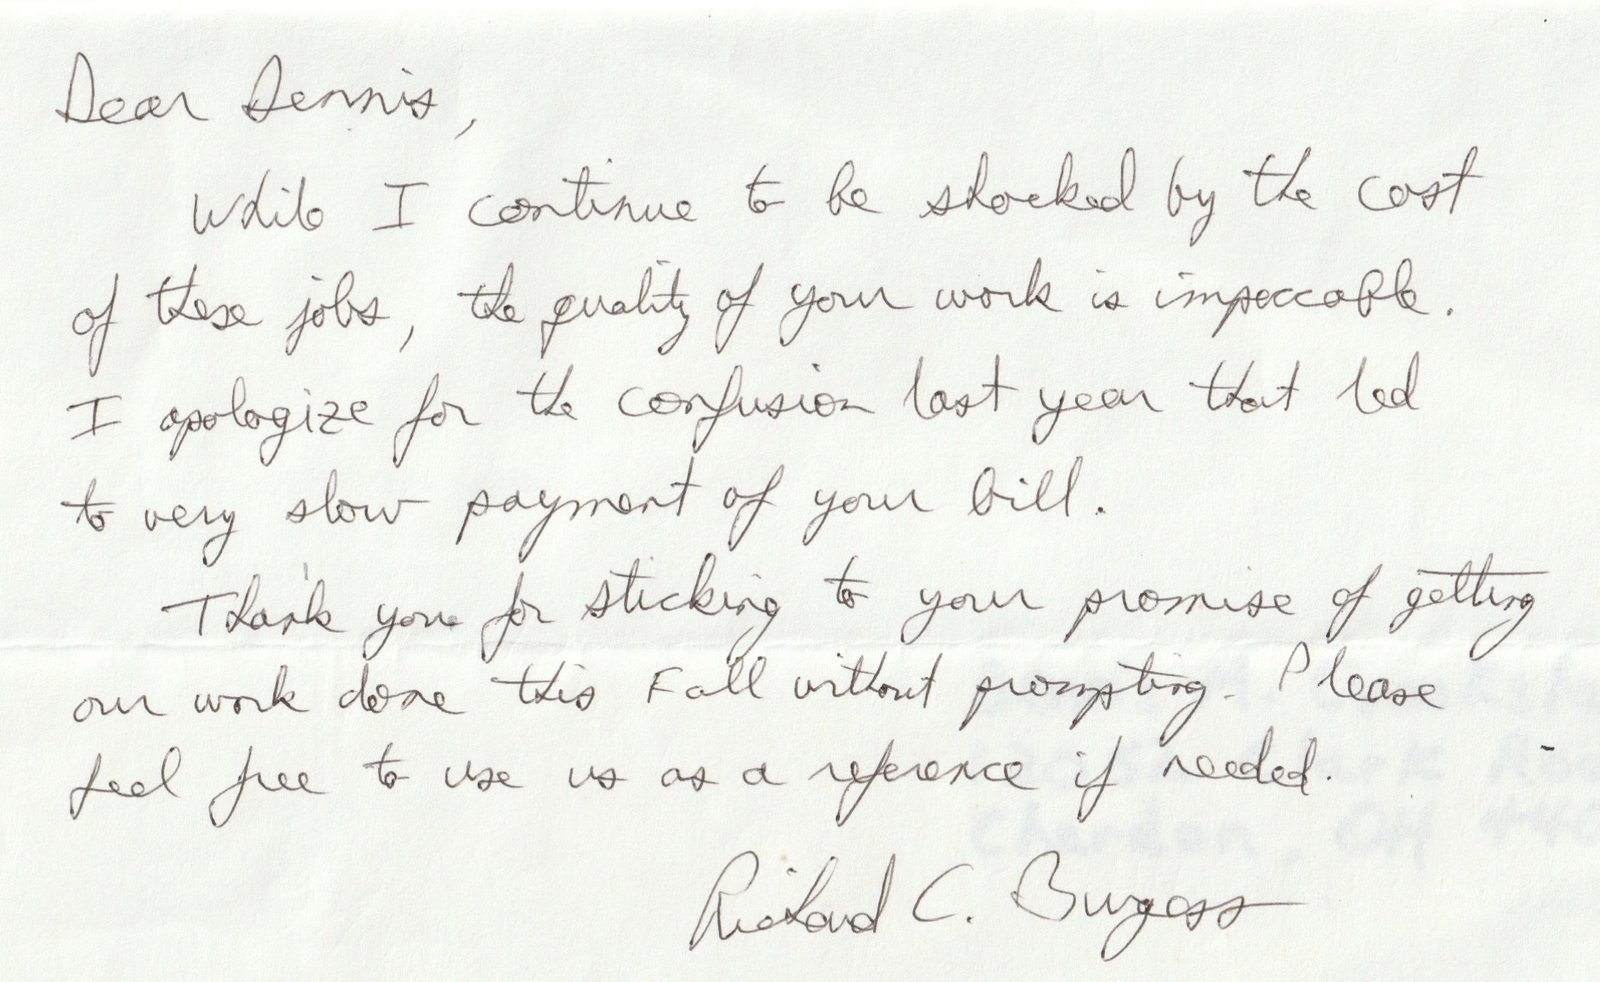 Dear Dennis,
While I continue to be shocked by the cost
of these jobs, the quality of your work is impeccable.
I apologize for the confusion last year that led
to very slow payment of your bill.
Thank you for sticking to your promise of getting
our work done this Fall without prompting. Please
feel free to use us as a reference if needed.
Richard C. Burgess
Chardon, OH 440